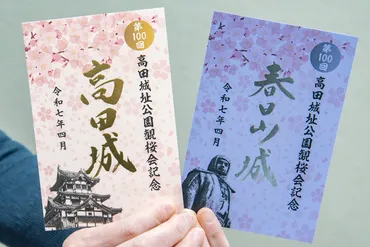 第
100
回
高田城址公園観桜会記念
高田城
令和七年四月
第
100
回
高田城址公園観桜会記念
春日山城
令和七年四月